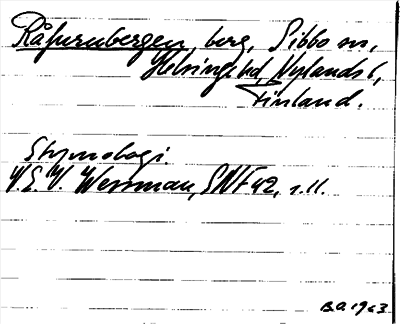 Råfurubergen, berg, Sibbo sn,
Helsinge hd, Nylands l,
Finland.
Etymologi
V.E.V. Wessman, SNF 42, s. 11.
B.O. 1963